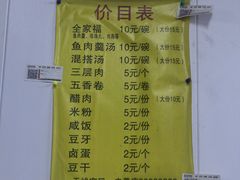 价目表
全家福 10元/碗 (大份15元)
鱼肉羹汤 10元/碗 (大份15元)
混搭汤 10元/碗 (大份15元)
三层肉 5元/个
五香卷 5元/卷
醋肉 5元/份 (大份10元)
米粉 5元/份
咸饭 2元/份
豆牙 2元/份
卤蛋 2元/个
豆干 2元/个